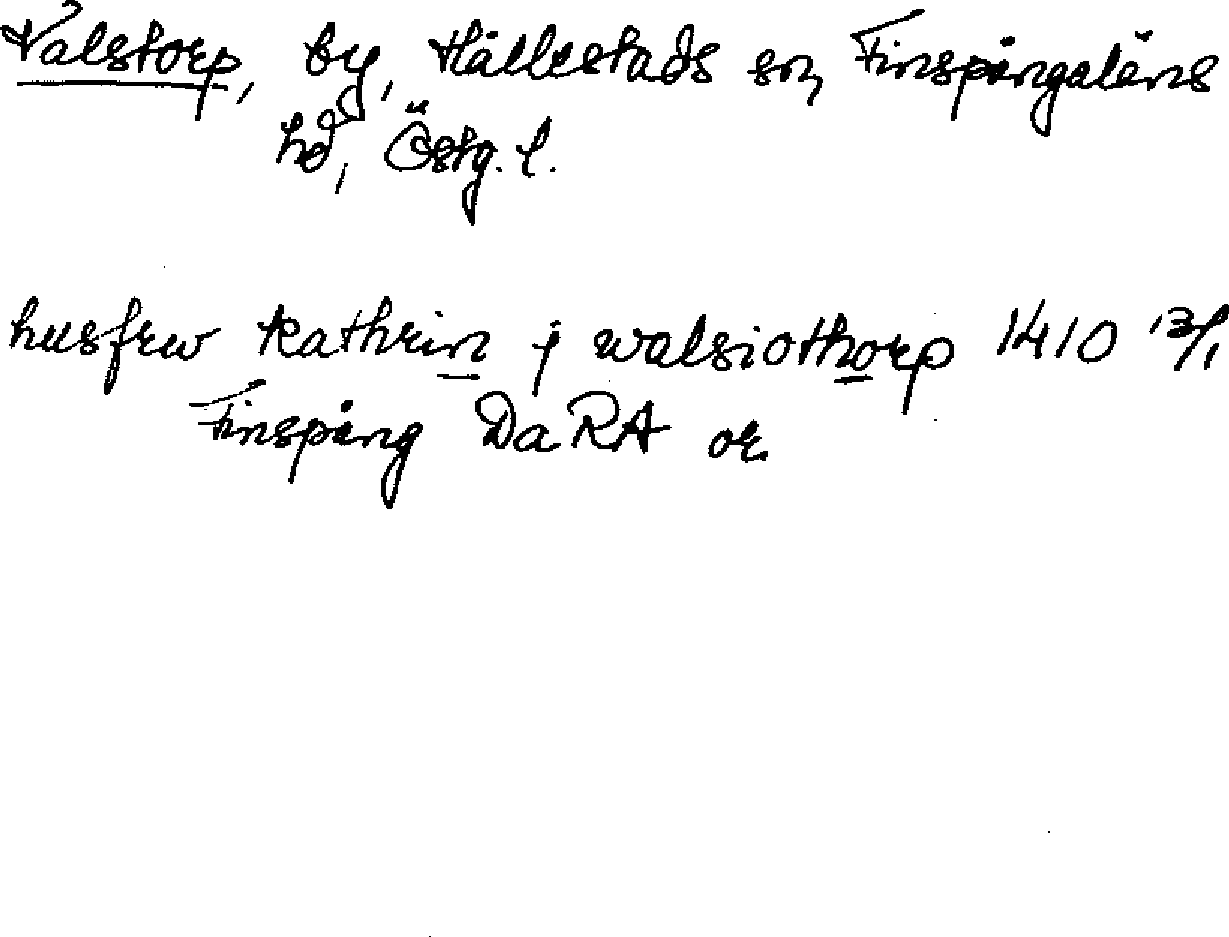 Valstorp, by, Hällestads sn, Finspångaläns
hd, Östg. l.
husfrw kathrin j walsiothorp 1410 13/1
Finspång DaRA or.